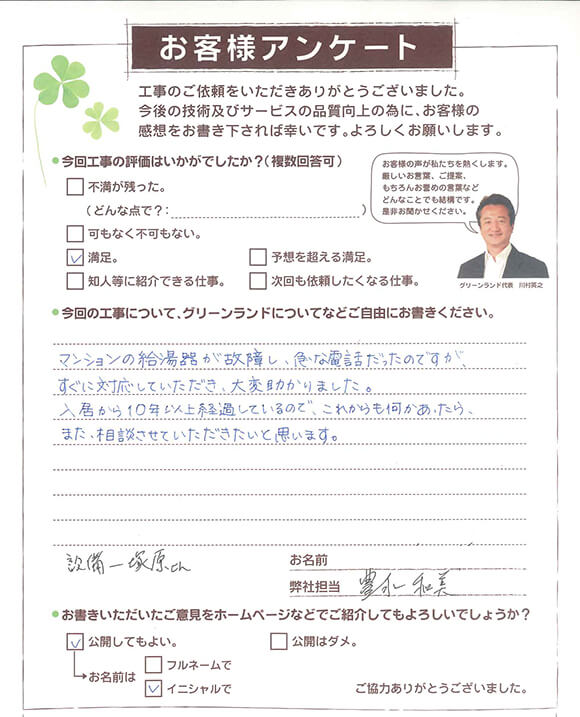 お客様アンケート
工事のご依頼をいただきありがとうございました。
今後の技術及びサービスの品質向上の為に、お客様の
感想をお書き下されば幸いです。よろしくお願いします。
今回工事の評価はいかがでしたか?(複数回答可)
不満が残った。
(どんな点で?: )
可もなく不可もない。
満足。
予想を超える満足。
知人等に紹介できる仕事。
次回も依頼したくなる仕事。
お客様の声が私たちを熱くします。
厳しいお言葉、ご提案、
もちろんお誉めの言葉など
どんなことでも結構です。
是非お聞かせください。
グリーンランド代表 川村英之
今回の工事について、グリーンランドについてなどご自由にお書きください。
マンションの給湯器が故障し、急な電話だったのですが、
すぐに対応していただき、大変助かりました。
入居から10年以上経過しているので、これからも何かあったら、
また、相談させていただきたいと思います。
設備 塚原さん
お名前
弊社担当 豊永 和美
お書きいただいたご意見をホームページなどでご紹介してもよろしいでしょうか?
公開してもよい。
公開はダメ。
お名前は
フルネームで
イニシャルで
ご協力ありがとうございました。